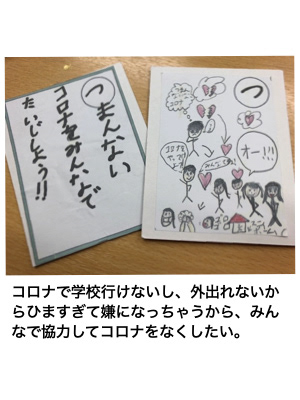 つまんない
コロナをみんなで
たいじしよう!!
つ
オー!!!
コロナで学校行けないし、外出れないか
らひますぎて嫌になっちゃうから、みん
なで協力してコロナをなくしたい。